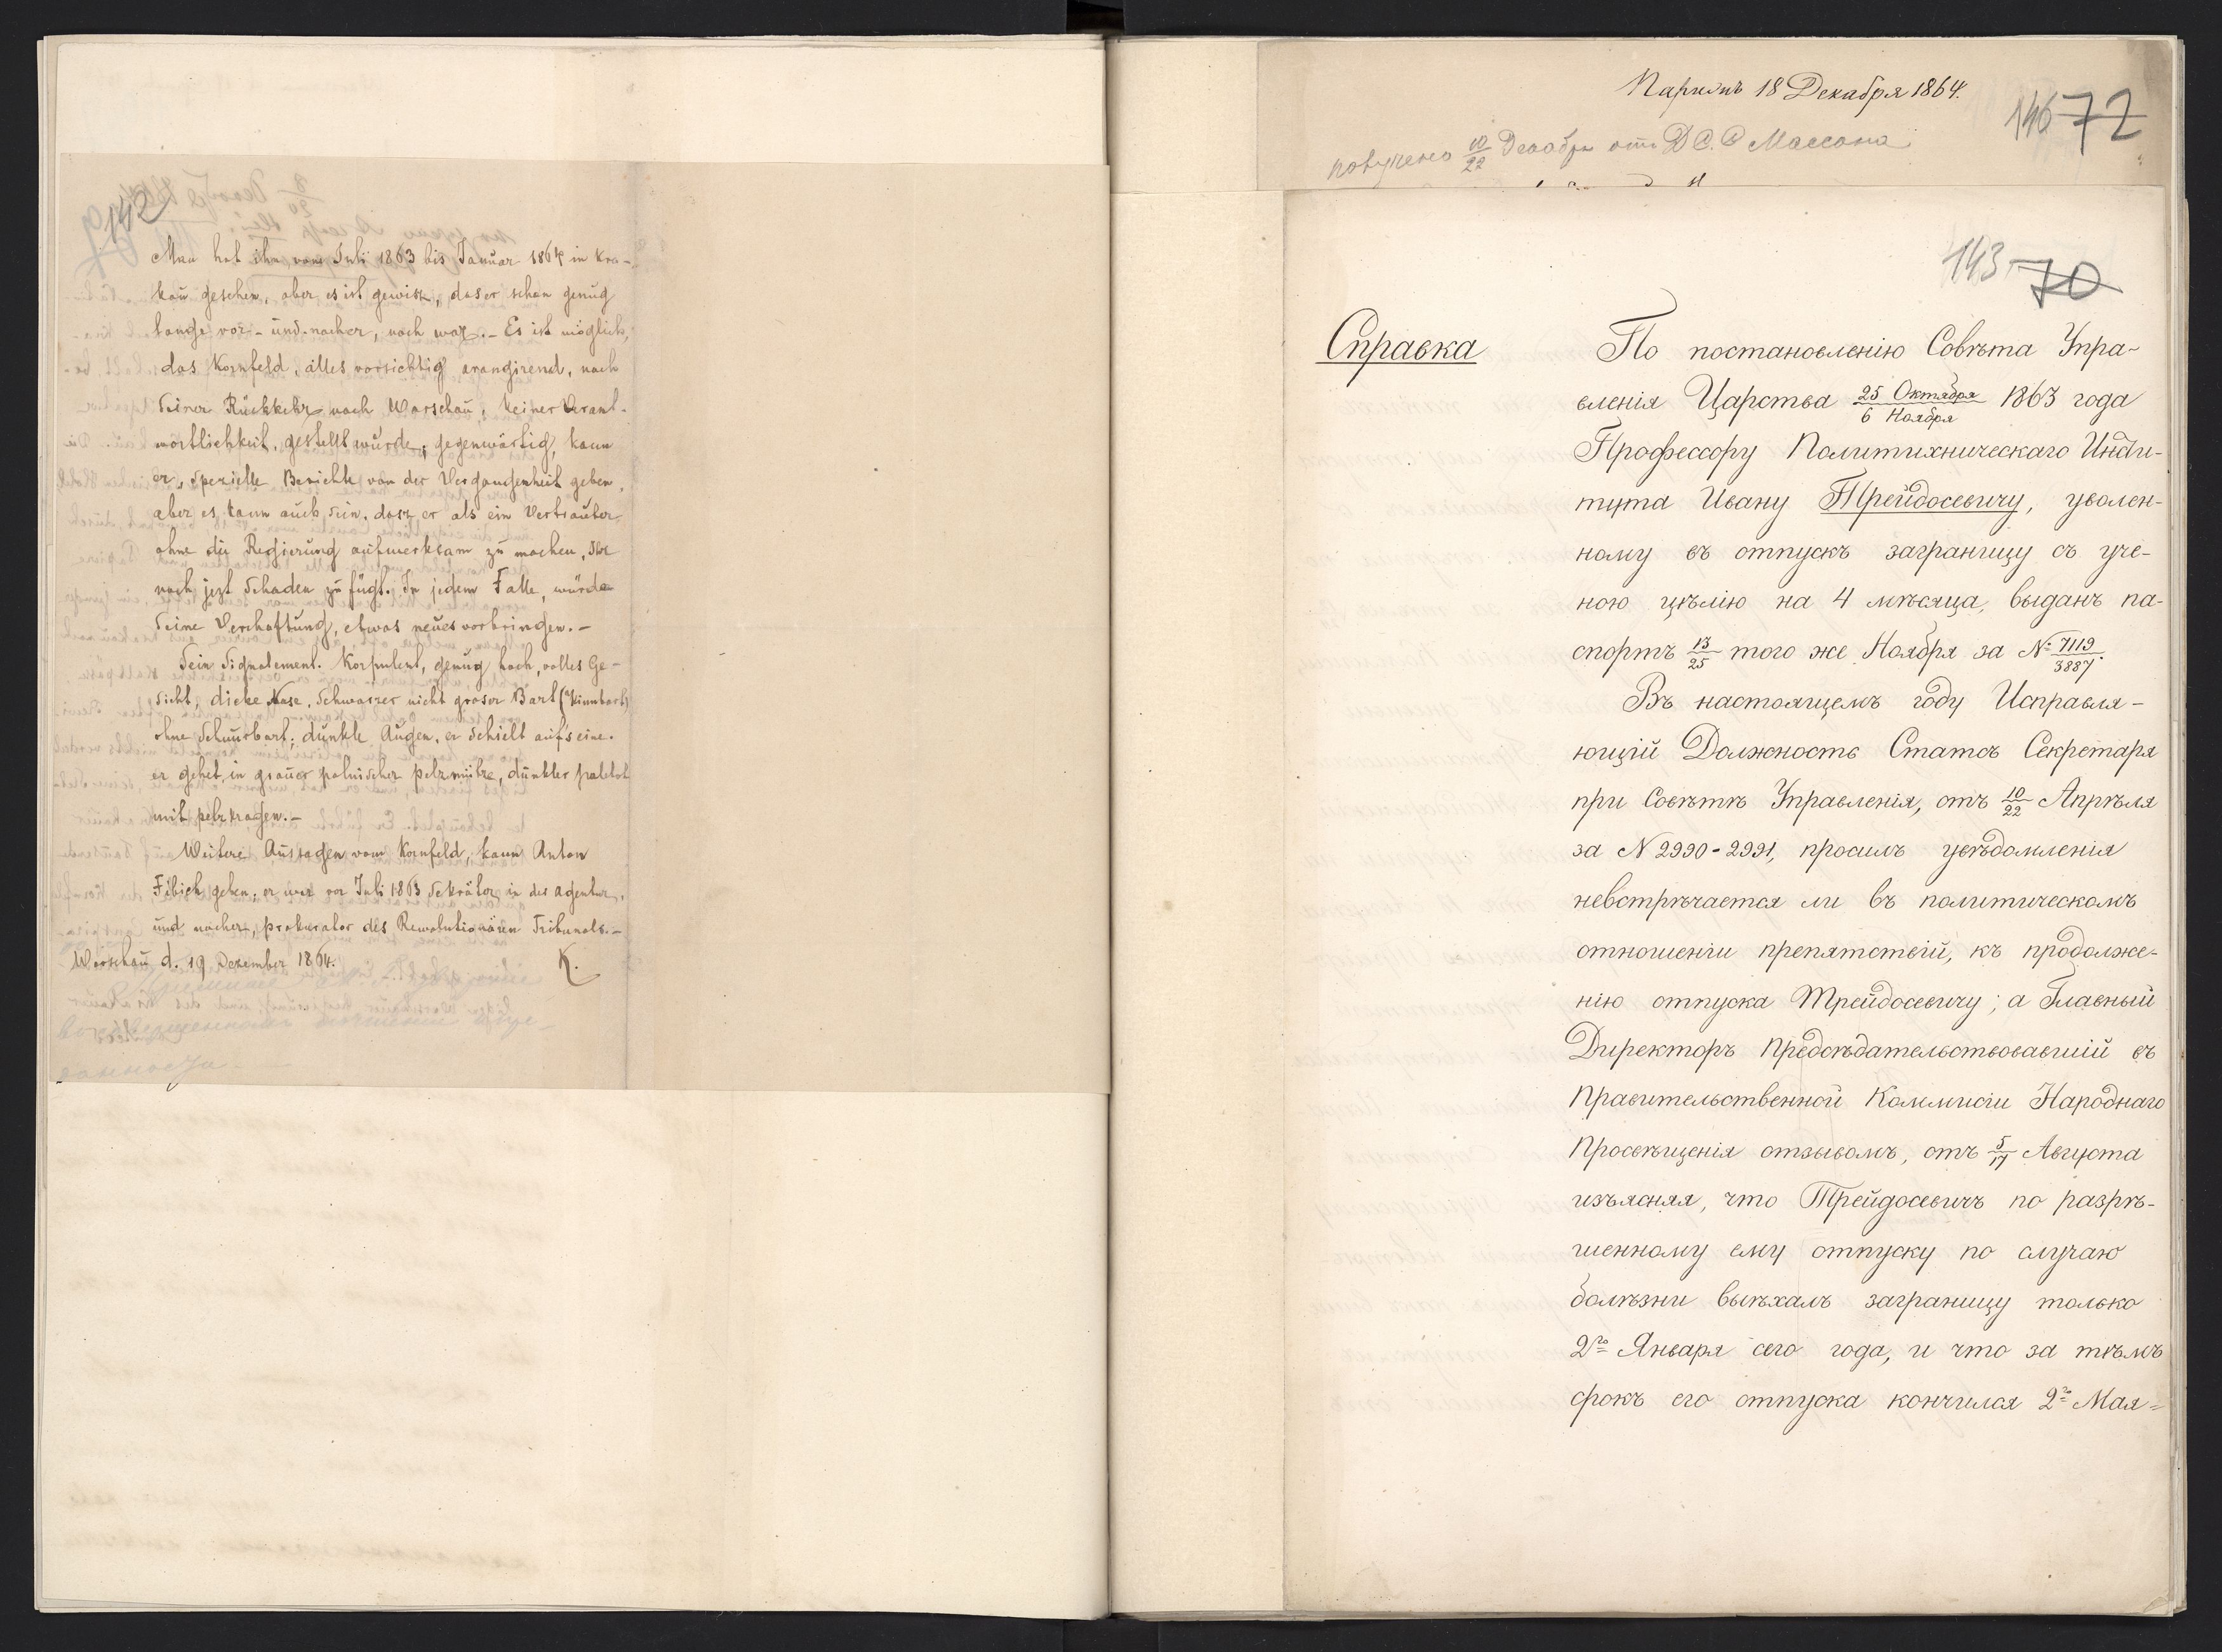 142
Man hat ihn vom Juli 1863 bis Januar 1864 in Kra-
kau gesehen, aber es ist gewiss, das er schon genug
lange vor- und nacher, noch war. – Es ist möglich,
das Kornfeld, alles vorsichtig arangirend, nach
seiner Rückkehr nach Warschau, keiner Verant-
wortlichkeit, gestellt wurde; gegenwärtig, kann
er, spezielle Berichte von der Vergangenheit geben,
aber es kann auch sein, dasz er als ein Vertrauter
ohne die Regierung aufmerksam zu machen, Ihr
noch jezt Schaden zu fügt. In jedem Falle, würde
seine Verhaftung, etwas neues vorbringen. –
Sein Signalement. Korpulent, genug hoch, volles Ge-
sicht, dicke Nase, schwarzer nicht groser Bart (Kinnbart)
ohne Schnurbart; dunkle Augen, er schielt aufs eine.
er gehet in grauer polnischer pelzmütze, dunkler paletot
mit pelzkragen. –
Weitere Aussagen vom Kornfeld, kann Anton
Fibich geben; er war vor Juli 1863 Sekrätor in der Agentur,
und nacher, prokurator des Rewolutionären Tribunals. –
Warschau d. 19 Dezember 1864.
K.
Парижъ 18 Декабря 1864.
получено 10/22 Декабря отъ Д. С. С Массона
146 72
143 70
Справка
По постановленію Совѣта Упра-
вленія Царства 25 Октября/6 Ноября 1863 года
Профессору Политихническаго Инсти-
тута Ивану Трейдосевичу, уволен-
ному въ отпускъ заграницу съ уче-
ною цѣлію на 4 мѣсяца, выданъ па-
спортъ 13/25 того же Ноября за № 7119/3887.
Въ настоящемъ году Исправля-
ющій Должность Статсъ Секретаря
при Совѣтѣ Управленія, отъ 10/22 Апрѣля
за N 2990-2991, просилъ увѣдомленія
невстрѣчается ли въ политическомъ
отношеніи препятствій, къ продолже-
нію отпуска Трейдосевичу; а Главный
Директоръ Предсѣдательствовавшій въ
Правительственной Коммисіи Народнаго
Просвѣщенія отзывомъ, отъ 5/17 Августа
изъясняя, что Трейдосевичъ по разрѣ-
шенному ему отпуску по случаю
болѣзни выѣхалъ заграницу только
2го Января сего года, и что за тѣмъ
срокъ его отпуска кончился 2го Мая =